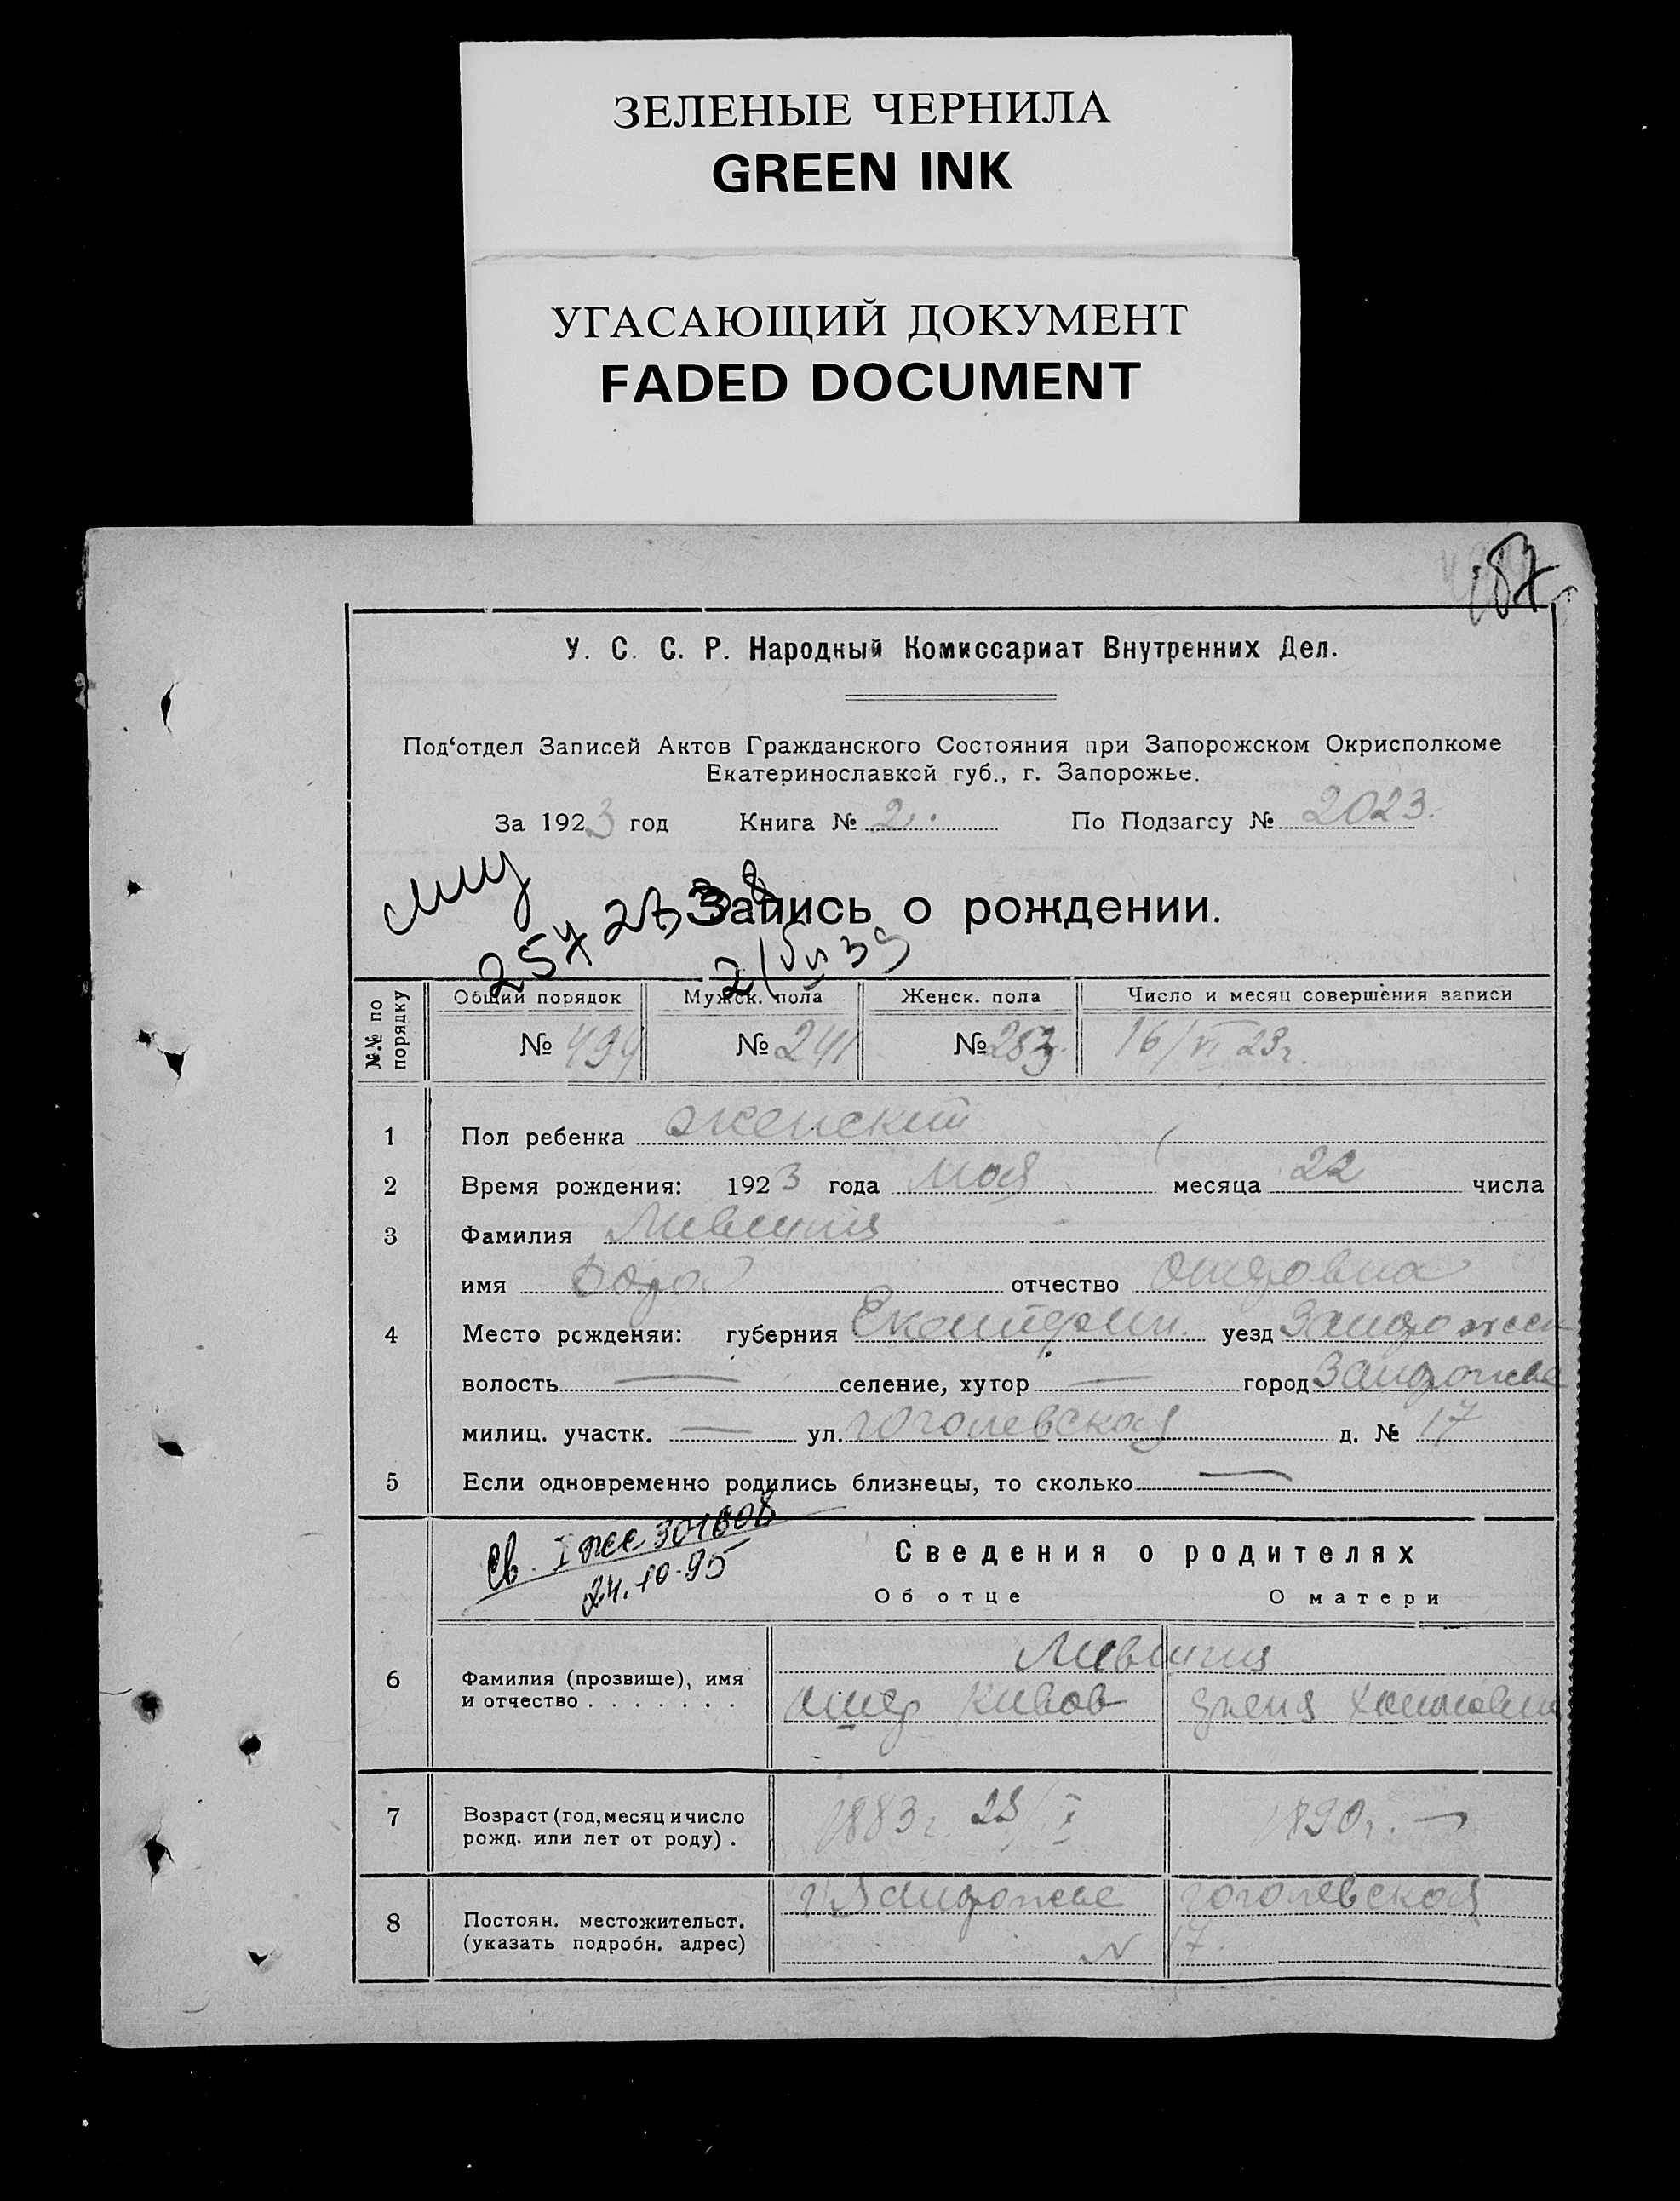 ЗЕЛЕНЫЕ ЧЕРНИЛА
GREEN INK
УГАСАЮЩИЙ ДОКУМЕНТ
FADED DOCUMENT
У. С. С. Р. Народный Комиссариат Внутренних Дел.
Под‘отдел Записей Актов Гражданского Состояния при Запорожском Окрисполкоме
Екатеринославкой губ., г. Запорожье.
За 1923 год Книга № 2. По Подзагсу № 2023.
Запись о рождении.
№.№ по порядку Общий порядок Мужск. пола Женск. пола Число и месяц совершения записи
№ 494 № 241 № 253 16/VI 23г.
1 Пол ребенка женский
2 Время рождения: 1923 года мая месяца 22 числа
3 Фамилия Лившиц
имя отчество Ошеровна
4 Место рожденяи: губерния Екатерин. уезд Запорожск
волость — селение, хутор — город Запорожье
милиц. участк. — ул. Гоголевская д. № 17
5 Если одновременно родились близнецы, то сколько —
Св. I ЖС 301608
24.10.95
Сведения о родителях
Об отце О матери
Лившиц
6 Фамилия (прозвище), имя
и отчество . . . . . . . Кивов
7 Возраст (год, месяц и число
рожд. или лет от роду) . 1883 г. 1890 г. —
8 Постоян. местожительст.
(указать подробн. адрес) г. Запорожье Гоголевская
N 17.